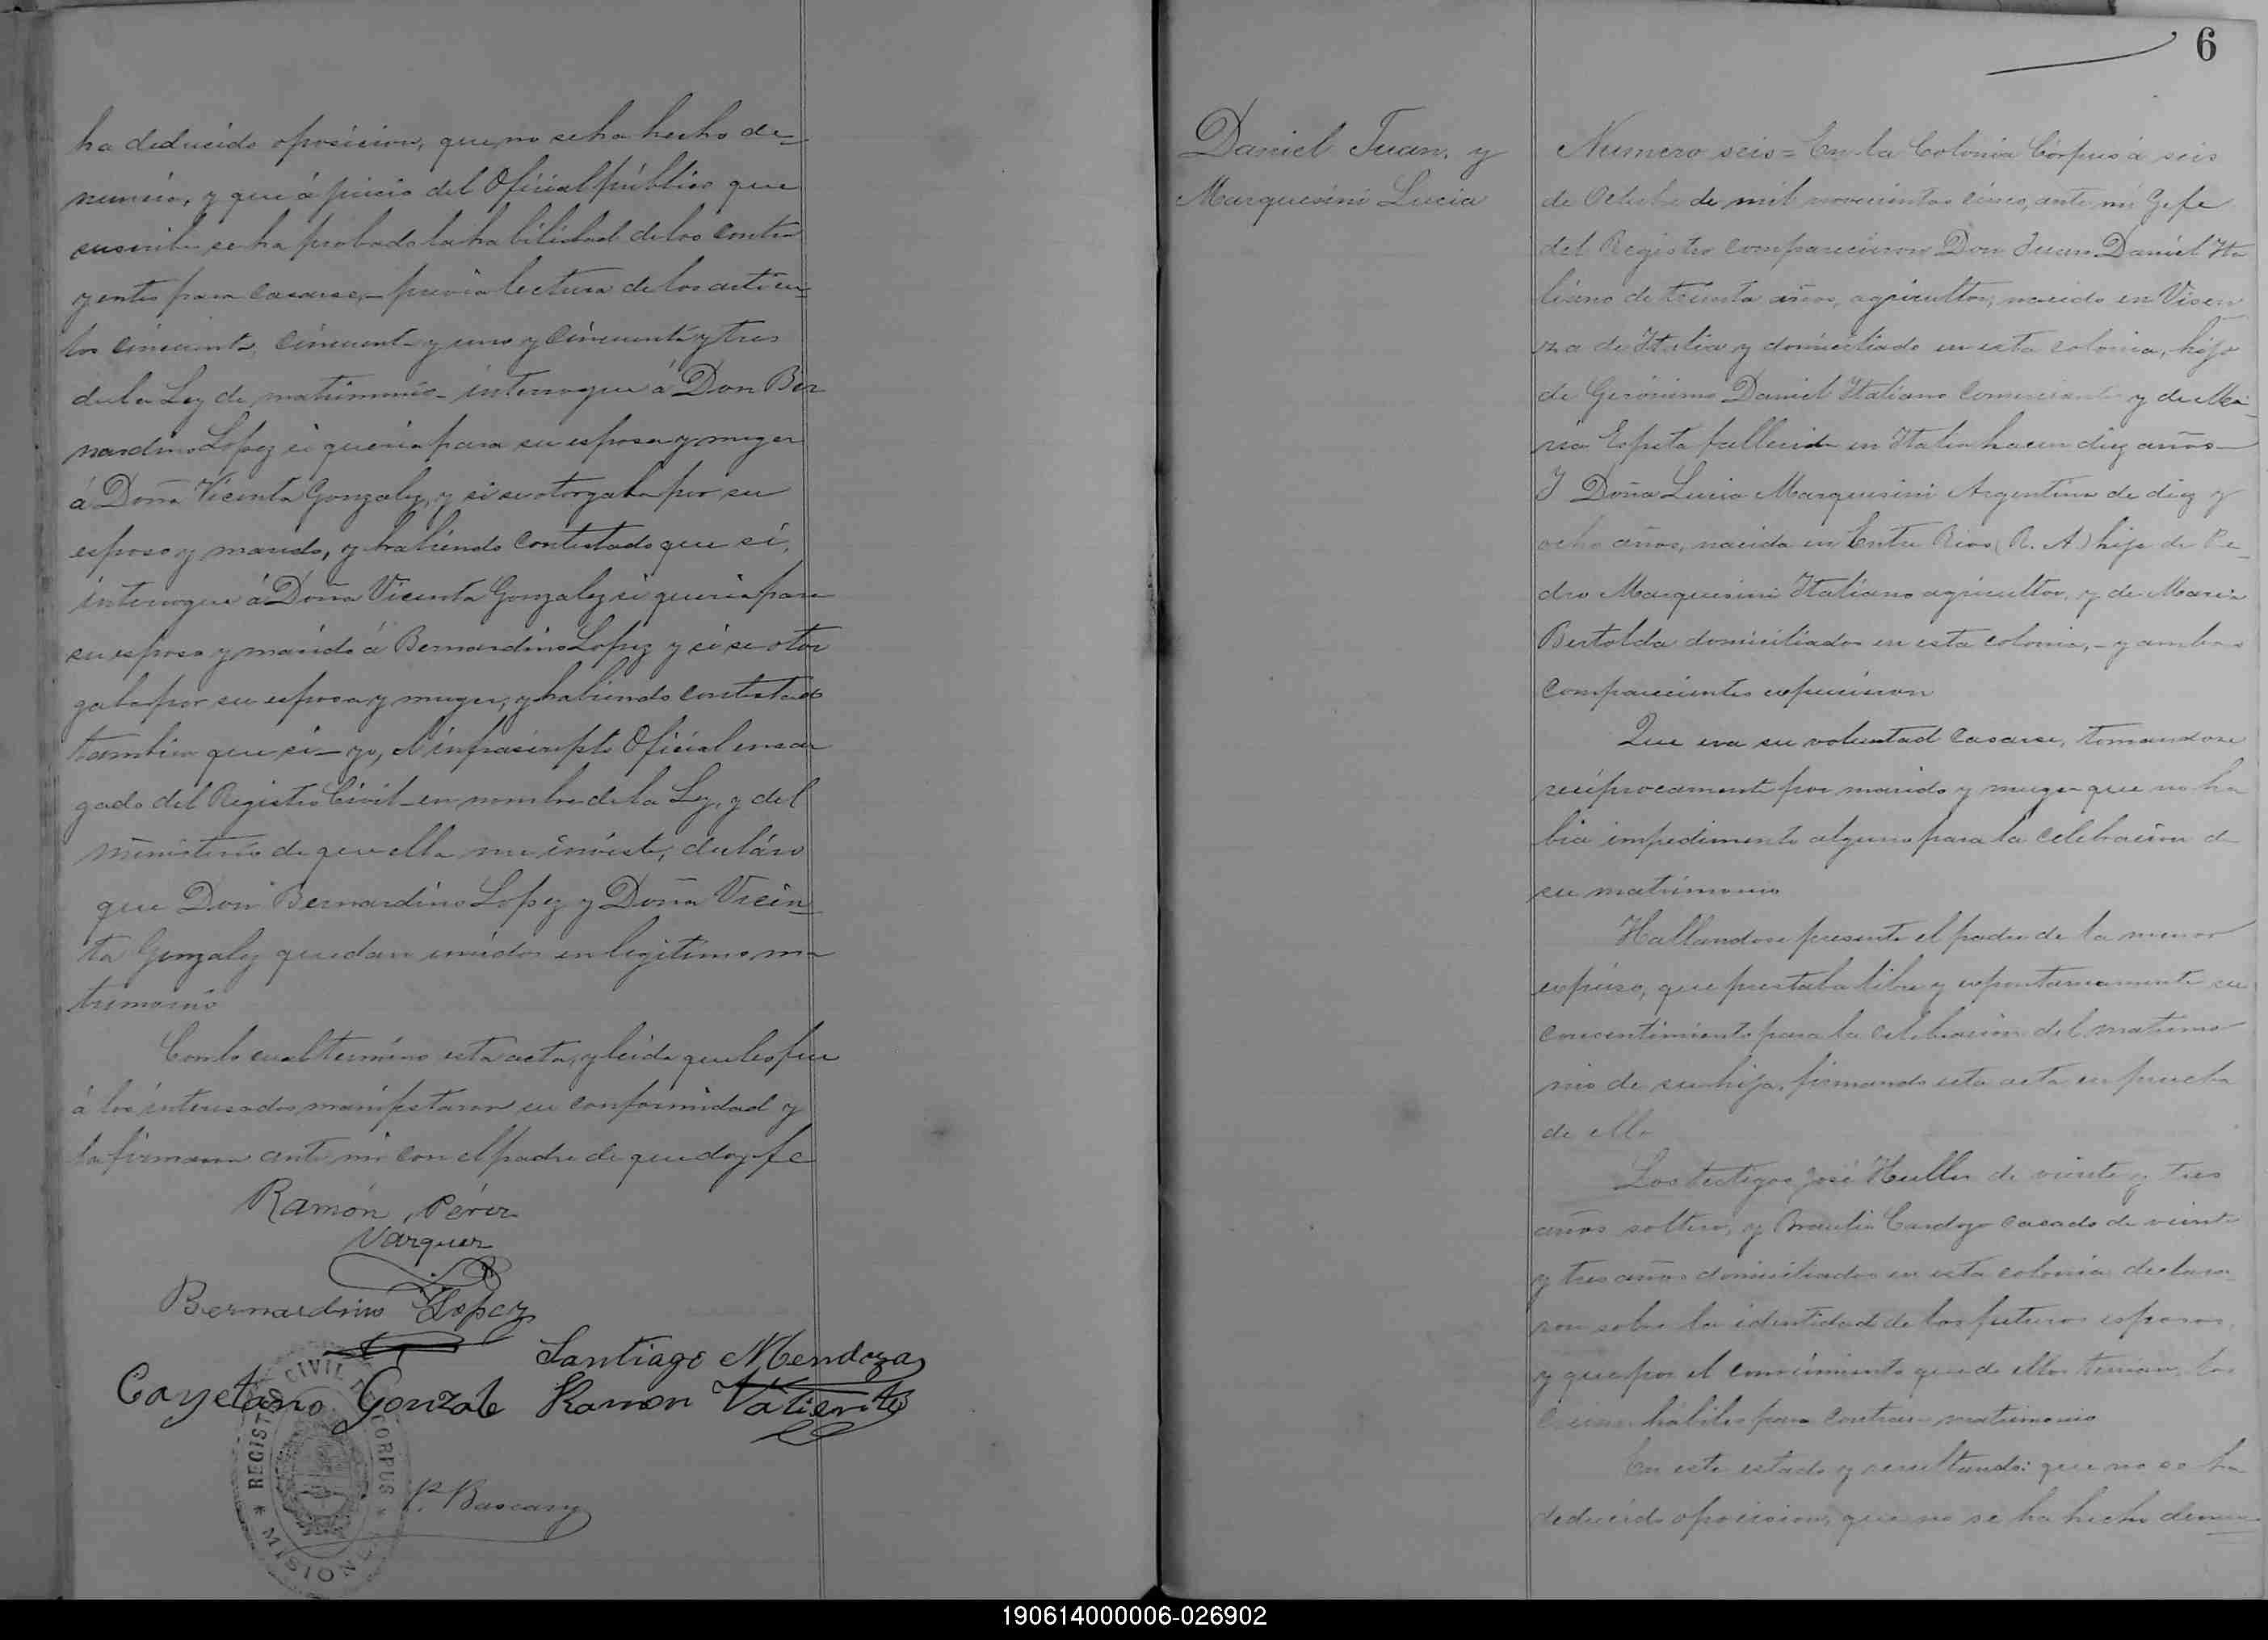 ha deducido oposicion, que no se ha hecho de-
nuncia, y que á juicio del Oficial público que
suscribe se ha probado la habilidad de los contra
yentes para casarse,- previa lectura de los articu-
los cincuenta, cincuenta y uno y cincuenta y tres
de la Ley de matrimonio- interrogue á Don Ber
nardino Lopez si queria para su esposa y muger
á Doña Vicenta Gonzalez, y si se otorgaba por su
esposo y marido, y habiendo contestado que sí,
interrogue á Doña Vicenta Gonzalez si queria para
su esposo y marido á Bernardino Lopez y si se otor
gaba por su esposa y muger, y habiendo contestado
tambien que si- yo, el infrascripto Oficial encar
gado del Registro Civil- en nombre de la Ley, y del
ministerio de que ella me inviste, declaro
que Don Bernardino Lopez y Doña Vicen-
ta Gonzalez quedan unidos en legitimo ma
trimonio
Con lo cual termino esta acta, y leida que les fue
á los interesados manifestaron su conformidad y
la firmaron ante mi con el padre de que doy fe
Ramón Pérez
Vazquez
Bernardino Lopez
Santiago Mendoza
Cayetano Gonzale Ramon
REGISTRO CIVIL DE CORPUS * MISIONES *
6
Daniel Juan, y
Marquesini Lucia
Numero seis= En la Colonia Córpus á seis
de Octubre de mil novecientos cinco, ante mi Gefe
del Registro comparecieron Don Juan Daniel Ita
liano de treinta años, agricultor, nacido en Vicen-
za de Italia y domiciliado en esta colonia, hijo
de Gerónimo Daniel Italiano comerciante y de Ma-
ria Espeta fallecida en Italia hacen diez años-
Y Doña Lucia Marquesini Argentina de diez y
ocho años, nacida en Entre Rios (R. A.) hija de Pe-
dro Marquesini Italiano agricultor, y de Maria
Bertolda domiciliados en esta colonia,- y ambos
comparecientes expusieron
Que era su voluntad casarse, tomandose
recíprocamente por marido y muger que no ha
bia impedimento alguno para la celebracion de
su matrimonio
Hallandose presente el padre de la menor
expuso, que prestaba libre y espontaneamente su
consentimiento para la celebracion del matrimo
nio de su hija, firmando esta acta en prueba
de ello
Los testigos José Huller de veinte y tres
años soltero, y Braulio Cardozo casado de veinte
y tres años domiciliados en esta colonia declara-
ron sobre la identidad de los futuros esposos,
y que por el conocimiento que de ellos tenian, los
creian hábiles para contraer matrimonio
En este estado y resultando: que no se ha
deducido oposicion, que no se ha hecho denun-
190614000006-026902